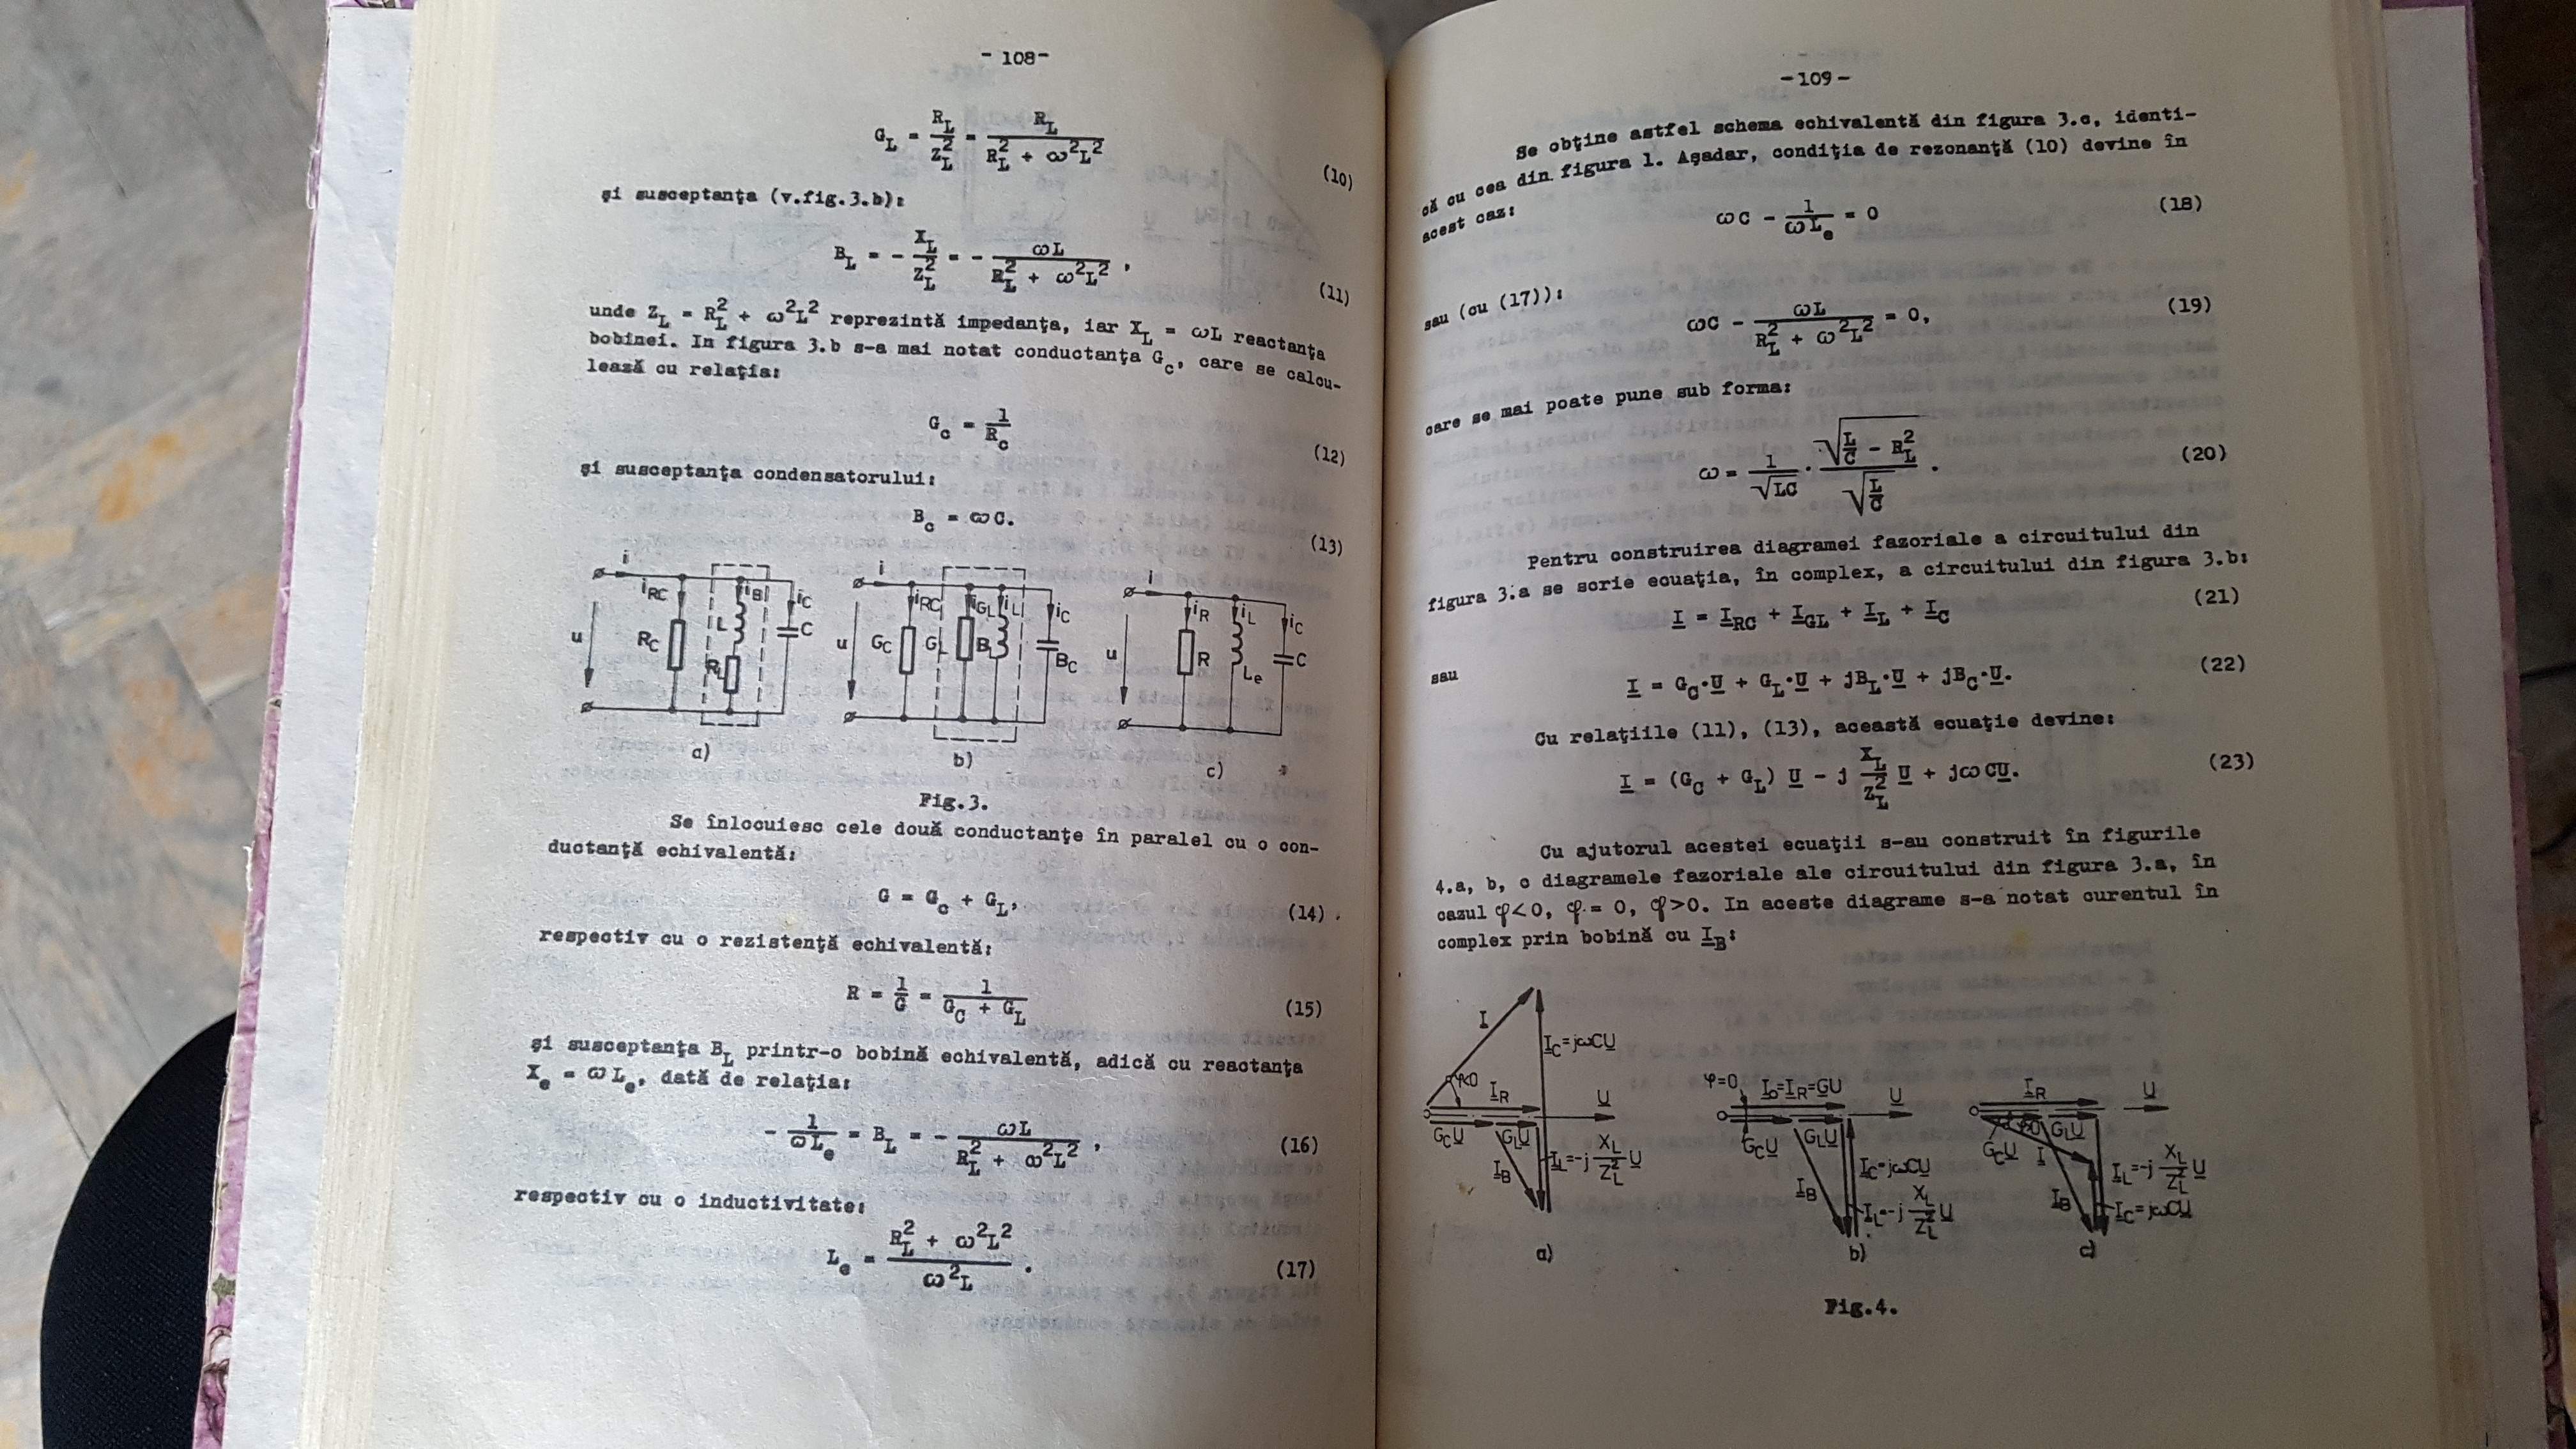 - 108-
G_L = R_L / Z_L^2 = R_L / (R_L^2 + ω^2L^2) (10)
şi susceptanţa (v.fig.3.b):
B_L = - X_L / Z_L^2 = - ωL / (R_L^2 + ω^2L^2) , (11)
unde Z_L = R_L^2 + ω^2L^2 reprezintă impedanţa, iar X_L = ωL reactanţa
bobinei. In figura 3.b s-a mai notat conductanţa G_c, care se calcu-
lează cu relaţia:
G_c = 1 / R_c (12)
şi susceptanţa condensatorului:
B_c = ωC. (13)
i i_RC i_B i_C u R_C L R_L C a)
i i_RC i_GL i_L i_C u G_C G_L B_L B_C b)
i i_R i_L i_C u R L_e C c)
Fig.3.
Se înlocuiesc cele două conductanţe în paralel cu o con-
ductanţă echivalentă:
G = G_c + G_L, (14)
respectiv cu o rezistenţă echivalentă:
R = 1 / G = 1 / (G_C + G_L) (15)
şi susceptanţa B_L printr-o bobină echivalentă, adică cu reactanţa
X_e = ωL_e, dată de relaţia:
- 1 / ωL_e = B_L = - ωL / (R_L^2 + ω^2L^2) , (16)
respectiv cu o inductivitate:
L_e = (R_L^2 + ω^2L^2) / ω^2L . (17)
-109-
Se obţine astfel schema echivalentă din figura 3.c, identi-
că cu cea din figura 1. Aşadar, condiţia de rezonanţă (10) devine în
acest caz:
ωC - 1 / ωL_e = 0 (18)
sau (cu (17)):
ωC - ωL / (R_L^2 + ω^2L^2) = 0, (19)
care se mai poate pune sub forma:
ω = 1 / √LC · √(L/C - R_L^2) / √(L/C) . (20)
Pentru construirea diagramei fazoriale a circuitului din
figura 3.a se scrie ecuaţia, în complex, a circuitului din figura 3.b:
I = I_RC + I_GL + I_L + I_C (21)
sau
I = G_C·U + G_L·U + jB_L·U + jB_C·U. (22)
Cu relaţiile (11), (13), această ecuaţie devine:
I = (G_C + G_L) U - j X_L / Z_L^2 U + jωCU. (23)
Cu ajutorul acestei ecuaţii s-au construit în figurile
4.a, b, c diagramele fazoriale ale circuitului din figura 3.a, în
cazul φ<0, φ = 0, φ>0. In aceste diagrame s-a notat curentul în
complex prin bobină cu I_B:
I I_C=jωCU φ<0 I_R U G_CU G_LU I_B I_L=-j X_L/Z_L^2 U a)
φ=0 I_0=I_R=GU U G_CU G_LU I_C=jωCU I_B I_L=-j X_L/Z_L^2 U b)
I_R U φ>0 G_LU G_CU I I_L=-j X_L/Z_L^2 U I_B I_C=jωCU c)
Fig.4.